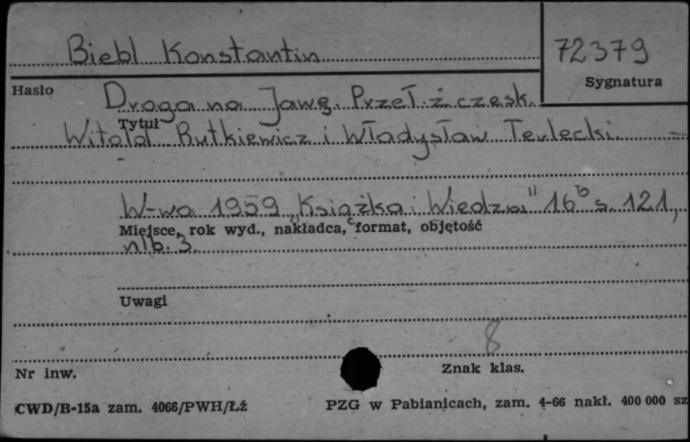 Biebl Konstantin
72379
Hasło
Sygnatura
Droga na Jawę. Przeł. z czesk.
Tytuł
Witold Rutkiewicz i Władysław Terlecki.
W-wa 1959 „Książka i Wiedza" 16° s. 121,
Miejsce, rok wyd., nakładca, format, objętość
nlb. 3.
Uwagi
8
Nr inw.
Znak klas.
CWD/B-15a zam. 4066/PWH/Łź
PZG w Pabianicach, zam. 4-66 nakł. 400 000 sz